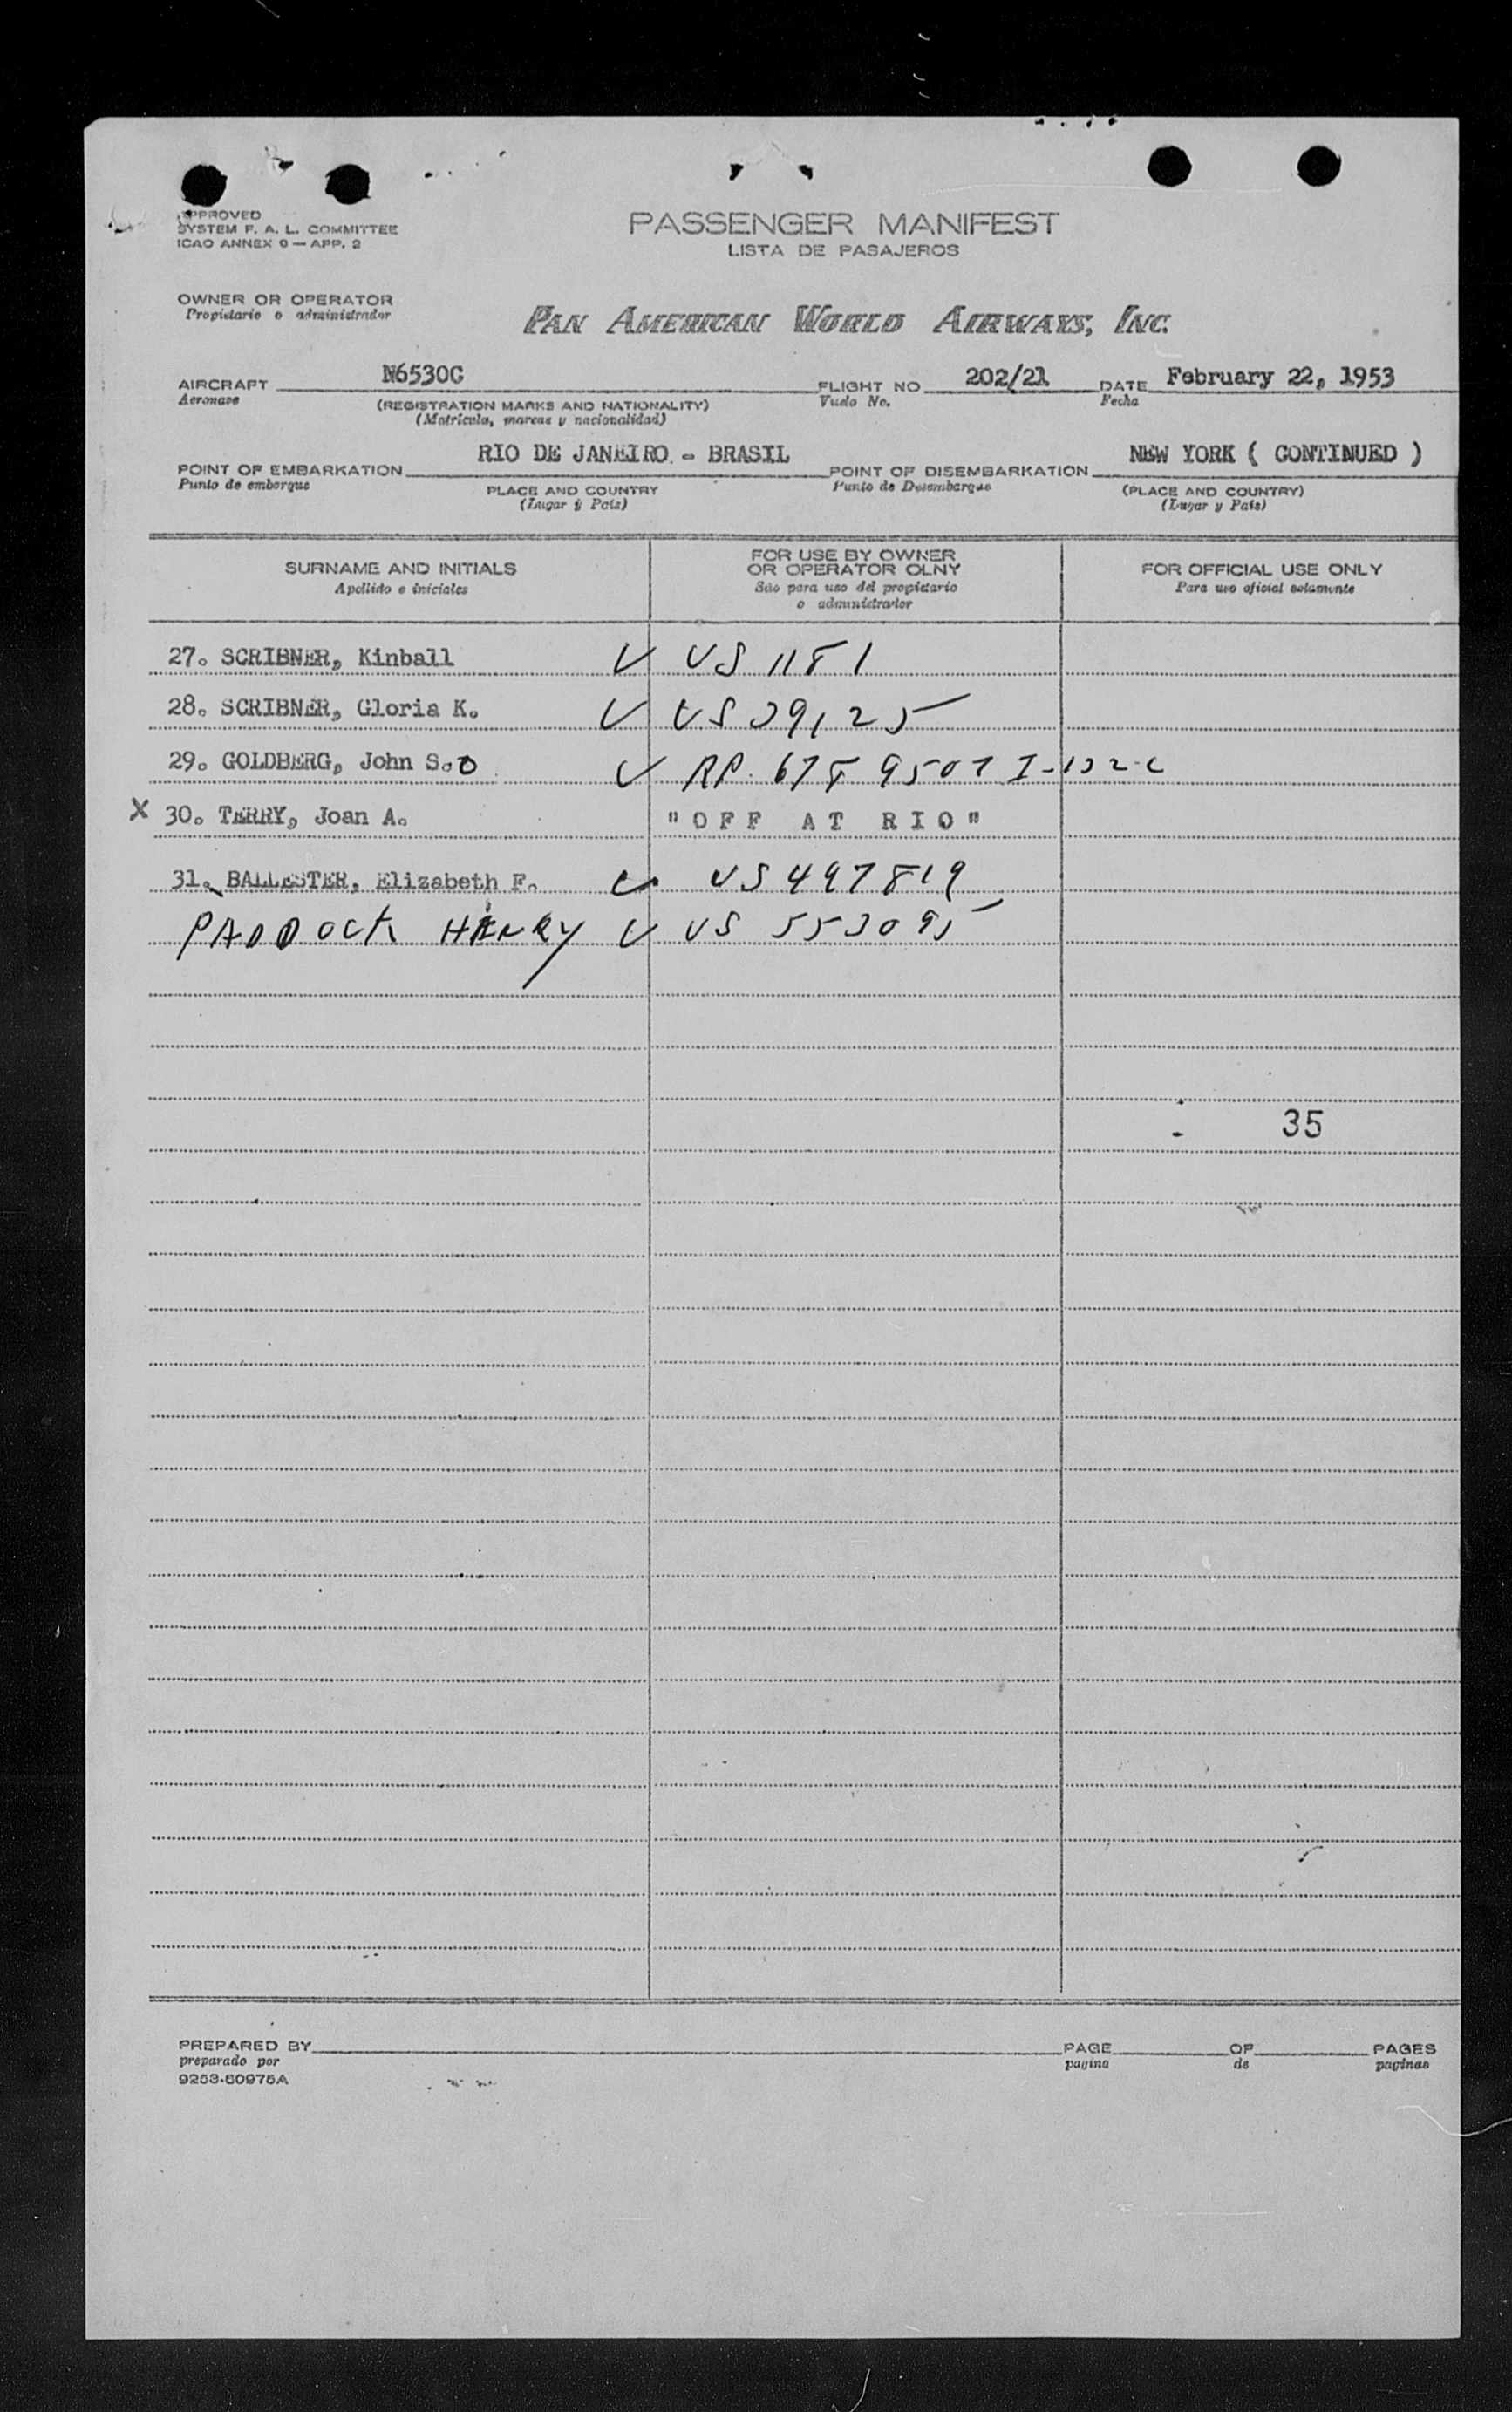 APPROVED
SYSTEM F. A. L. COMMITTEE
ICAO ANNEX 9 — APP. 2
PASSENGER MANIFEST
LISTA DE PASAJEROS
OWNER OR OPERATOR
Propietario o administrador
PAN AMERICAN WORLD AIRWAYS, INC.
AIRCRAFT N6530C FLIGHT NO 202/21 DATE February 22, 1953
Aeronave (REGISTRATION MARKS AND NATIONALITY) Vuelo No. Fecha
(Matricula, marcas y nacionalidad)
POINT OF EMBARKATION RIO DE JANEIRO - BRASIL POINT OF DISEMBARKATION NEW YORK ( CONTINUED )
Punto de embarque PLACE AND COUNTRY Punto de Desembarque (PLACE AND COUNTRY)
(Lugar y Pais) (Lugar y Pais)
SURNAME AND INITIALS FOR USE BY OWNER OR OPERATOR OLNY FOR OFFICIAL USE ONLY
Apellido e iniciales Sólo para uso del propietario o administrador Para uso oficial solamente
27. SCRIBNER, Kinball V US 1181
28. SCRIBNER, Gloria K. V US 39125
29. GOLDBERG, John S.O V RP. 678 9507 I-132-C
X 30. TERRY, Joan A. "OFF AT RIO"
31. BALLESTER, Elizabeth F. V US 497819
PADDOCK HENRY V US 553095
35
PREPARED BY PAGE OF PAGES
preparado por pagina de paginas
9253-60975A